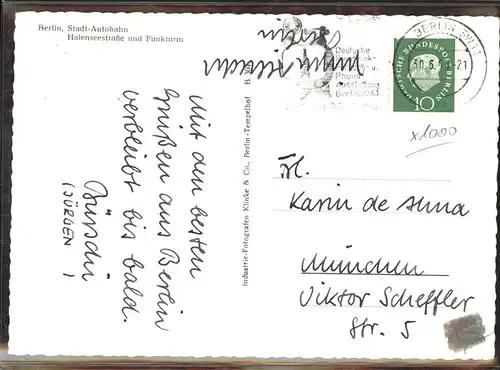 Berlin, Stadt-Autobahn
Halenseestraße und Funkturm
Mit den besten
Grüßen aus Berlin
verbleibt bis bald.
(JÜRGEN)
Industrie-Fotografen Klinke & Co., Berlin-Tempelhof
Berlin
Deutsche
Ausstellung
Berlin 1961
BERLIN SW11
DEUTSCHE BUNDESPOST BERLIN
10
x1000
Frl.
Karin de Anna
München
Viktor Scheffler
Str. 5